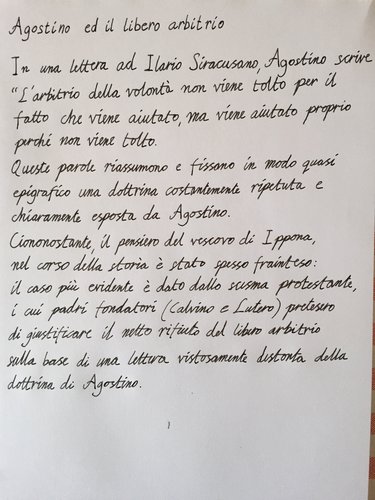 Agostino ed il libero arbitrio
In una lettera ad Ilario Siracusano, Agostino scrive
"L'arbitrio della volontà non viene tolto per il
fatto che viene aiutato, ma viene aiutato proprio
perché non viene tolto.
Queste parole riassumono e fissano in modo quasi
epigrafico una dottrina costantemente ripetuta e
chiaramente esposta da Agostino.
Ciononostante, il pensiero del vescovo di Ippona,
nel corso della storia è stato spesso frainteso:
il caso più evidente è dato dallo scisma protestante,
i cui padri fondatori (Calvino e Lutero) pretesero
di giustificare il netto rifiuto del libero arbitrio
sulla base di una lettura vistosamente distorta della
dottrina di Agostino.
1